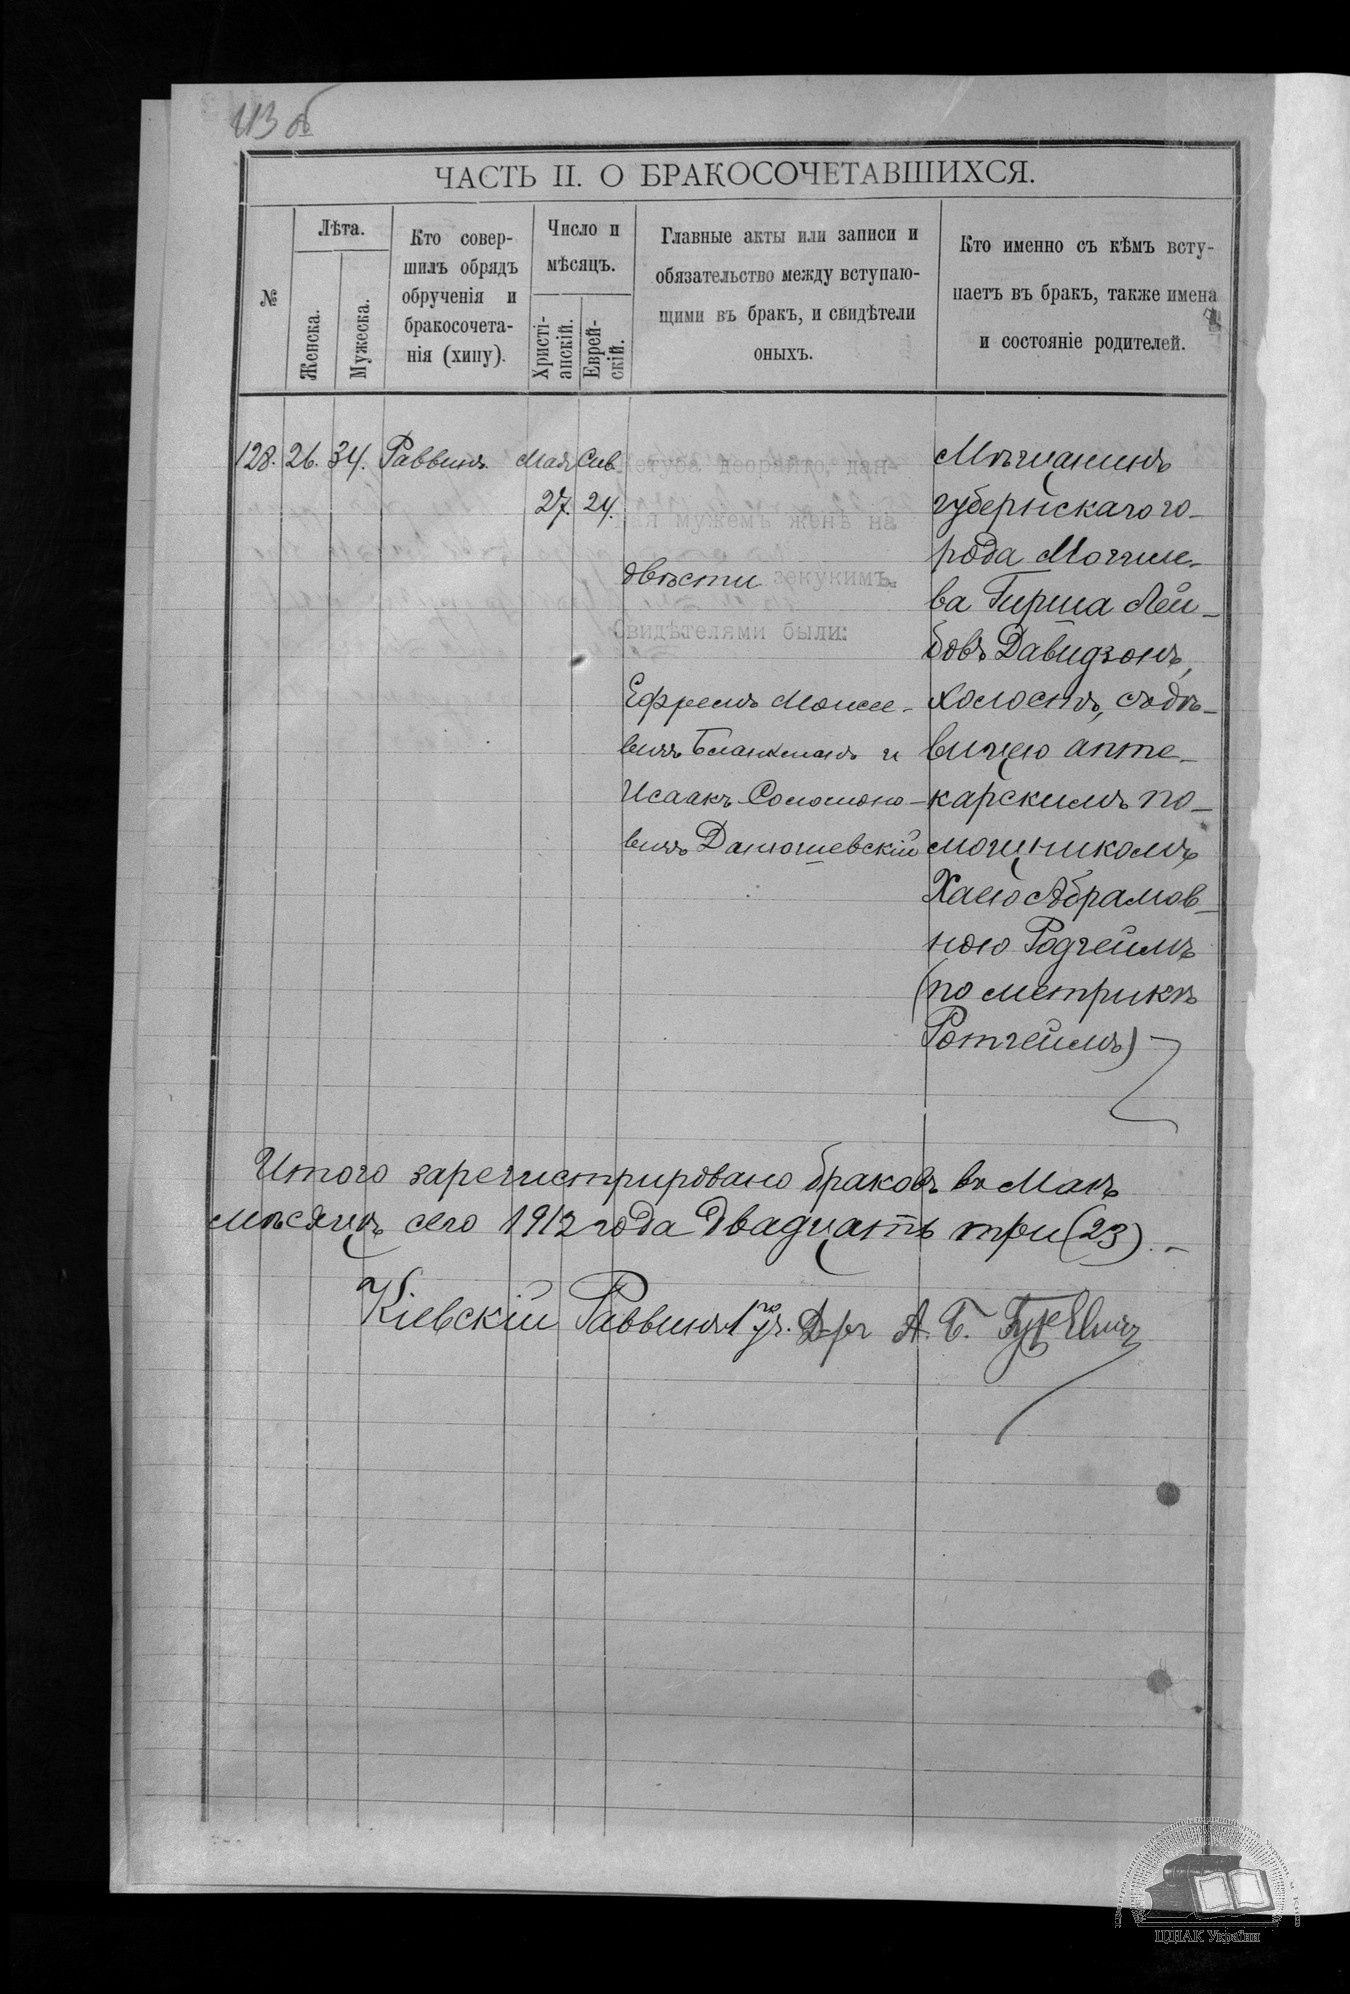 113 об
ЧАСТЬ II. О БРАКОСОЧЕТАВШИХСЯ.
№
Лѣта.
Женска.
Мужеска.
Кто совер-
шилъ обрядъ
обрученія и
бракосочета-
нія (хипу).
Число и
мѣсяцъ.
Христі-
анскій.
Еврей-
скій.
Главные акты или записи и
обязательство между вступаю-
щими въ бракъ, и свидѣтели
оныхъ.
Кто именно съ кѣмъ всту-
паетъ въ бракъ, также имена
и состояніе родителей.
128. 26. 34. Раввинъ Мая Сив
27. 24.
Кетуба деорайто, дан-
ная мужемъ женѣ на
двѣсти зекукимъ.
Свидѣтелями были:
Ефремъ Моисее-
вичъ Бланкманъ и
Исаакъ Соломоно-
вичъ Данюшевскій
Мѣщанинъ
губернскаго го-
рода Могиле-
ва Гирша Лей-
бовъ Давидзонъ,
холостъ, съ дѣ-
вицею апте-
карскимъ по-
мощникомъ
Хаею Абрамов-
ною Родгеймъ
(по метрикѣ
Ротгеймъ)
Итого зарегистрировано браковъ въ Маѣ
мѣсяцѣ сего 1912 года двадцать три (23). –
Кіевскій Раввинъ 1го уч. Д-ръ А. Б. Гуревичъ
ЦДІАК України